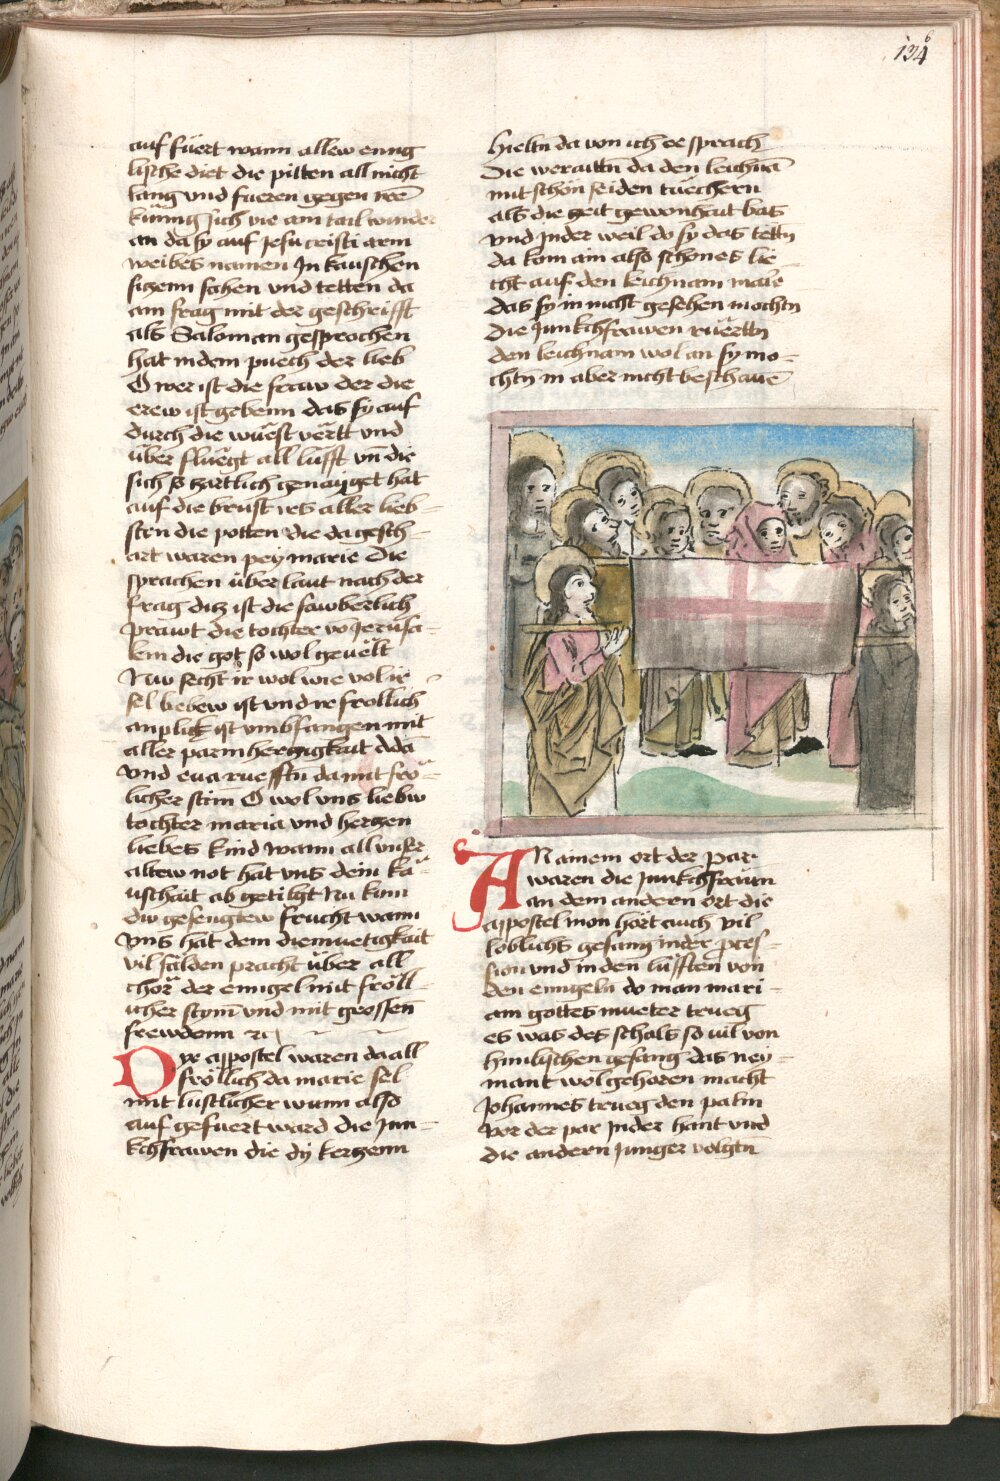 134
auf fűert wann allew enng
lische diet die pilten all nicht
lang vnd fueren gegen irē
kűnig sich vie am tail wunder
an da sy auf jesu cristi arm
weibes namen In kauschen
siczenn sahen vnd tetten da
am frag mit der geschrifft
als Saloman gesprochen
hat in dem puech der lieb
O wer ist die fraw der die
erew ist gebenn das sy auf
durch die wűest vertt vnd
űber fluegt all lufft vn die
sich so zärtlich genayget hat
auf die brust irs aller lieb-
sten die potten die da gesch-
art waren pey marie Die
sprachen űber laut nach der
frag dicz ist die sawberlich
prawt die tochter vō Jerusa-
lem die got so wol geuelt
Nw secht ir wol wie vol ir
sel bebew ist vnd ir frolich
anplick ist vmbfangen mit
aller parmherczigkait ādā
vnd eua ruefftn da mit frő-
licher stim O wol vns liebw
tochter maria vnd herczen
liebes kind wann all vnser
altew not hat vns dein ka-
uschait ab getilgt Nu kum
dw gesengtew frucht wann
vns hat dem diemuetigkait
vil sälden pracht űber all
chőr der enngel mit frőll-
icher stym vnd mit grossen
frewdenn zc
Dye apostel waren da all
frőllich da marie sel
mit lustlicher wunn also
auf gefuert ward die Jun-
kchfrawen die dy kerczenn
hieltn da von ich ee sprach
Die weraittn da den leichnā
mit schőn seiden tűechern
als die zeit gewonhait bas
vnd Inder weil do sy das tettn
da kom ain also schones lie
cht auf den leichnam marie
das sy in nicht gesehen mochtn
die Junkchfrawen rűerttn
den leichnam wol an sy mo-
chtn in aber nicht beschauē
AN ainem ort der par
waren die Junkchfrawn
an dem anderen ort die
apostel mon hőrt auch vil
loblichs gesang in der pres-
sion vnd in den lűfften von
den enngeln do man mari-
am gottes mueter trueg
es was des schals so vil von
himlischen gesang das ney-
mant wol gehoren macht
Johannes trueg den palm
vor der par Inder hant vnd
die andern Junger volgtn